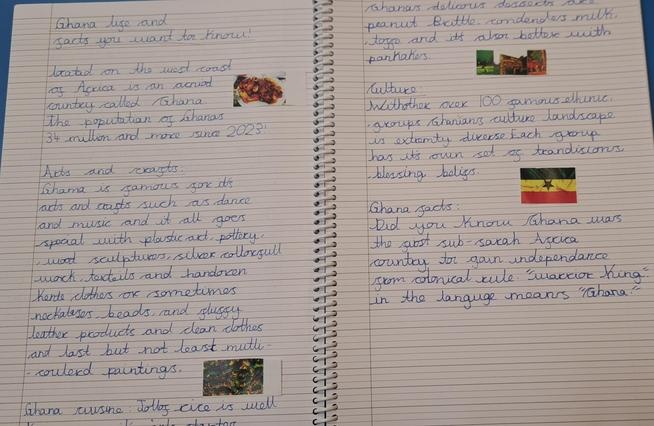 Ghana life and
facts you want to know!
located on the west coast
of Africa is an
country called Ghana.
the population of Ghanas
34 million and more since 2023!
Arts and crafts:
Ghama is famous for it's
arts and crafts such as dance
and music and it all goes
special with plastic art, pottery,
wood sculptures, silver
work, texteils and handoven
kente clothes or sometimes
necklases, beads, and fluffy
leather products and clean clothes
and last but not least multi-
- coulerd paintings.
Ghana cuisine: Jollof rice is well
Ghana's delicious desserts are
peanut Brittle, condenders milk,
toffo and it's also better with
pankakes.
Culture:
Withother over 100 famous ethinic,
groups Ghanians culture landscape
is extramty diverse. Each group
has it's own set of trandisions,
blessing beligs.
Ghana facts:
Did you know Ghana was
the first sub-sarah Africa
country to gain independance
from colonical rule. "Warrior King"
in the languge means "Ghana."